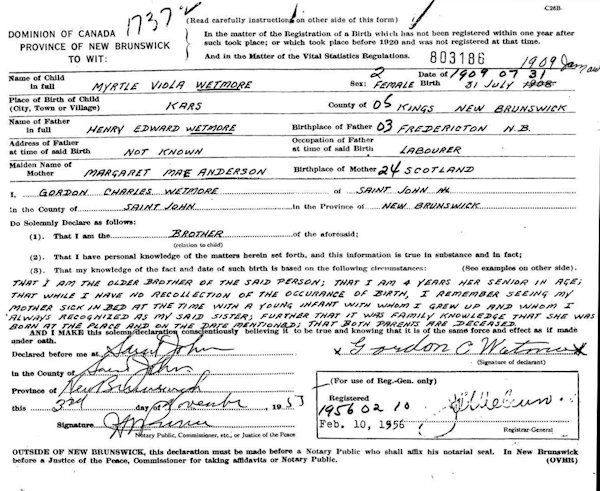 C26B.
1737
(Read carefully instructions on other side of this form)
DOMINION OF CANADA
PROVINCE OF NEW BRUNSWICK
TO WIT:
In the matter of the Registration of a Birth which has not been registered within one year after
such took place; or which took place before 1920 and was not registered at that time.
And in the Matter of the Vital Statistics Regulations. 803186 1909
Name of Child in full MYRTLE VIOLA WETMORE Sex: 2 FEMALE Date of Birth 1909 07 31 31 JULY 1908
Place of Birth of Child (City, Town or Village) KARS County of 06 KINGS NEW BRUNSWICK
Name of Father in full HENRY EDWARD WETMORE Birthplace of Father 03 FREDERICTON N.B.
Address of Father at time of said Birth NOT KNOWN Occupation of Father at time of said Birth LABOURER
Maiden Name of Mother MARGARET MAE ANDERSON Birthplace of Mother 24 SCOTLAND
I, GORDON CHARLES WETMORE of SAINT JOHN
in the County of SAINT JOHN in the Province of NEW BRUNSWICK
Do Solemnly Declare as follows:
(1). That I am the BROTHER of the aforesaid;
(relation to child)
(2). That I have personal knowledge of the matters herein set forth, and this information is true in substance and in fact;
(3). That my knowledge of the fact and date of such birth is based on the following circumstances: (See examples on other side).
THAT I AM THE OLDER BROTHER OF THE SAID PERSON; THAT I AM 4 YEARS HER SENIOR IN AGE;
THAT WHILE I HAVE NO RECOLLECTION OF THE OCCURANCE OF BIRTH, I REMEMBER SEEING MY
MOTHER SICK IN BED AT THE TIME WITH A YOUNG INFANT WITH WHOM I GREW UP AND WHOM I
ALWAYS RECOGNIZED AS MY SAID SISTER; FURTHER THAT IT WAS FAMILY KNOWLEDGE THAT SHE WAS
BORN AT THE PLACE AND ON THE DATE MENTIONED; THAT BOTH PARENTS ARE DECEASED.
AND I MAKE this solemn declaration conscientiously believing it to be true and knowing that it is of the same force and effect as if made
under oath.
Declared before me at Saint John
Gordon C Wetmore
(Signature of declarant)
in the County of Saint John
Province of New Brunswick
this 3rd day of November 1955
Signature
Notary Public, Commissioner, etc., or Justice of the Peace
(For use of Reg.-Gen. only)
Registered
1956 02 10
Feb. 10, 1956
Registrar-General
OUTSIDE OF NEW BRUNSWICK, this declaration must be made before a Notary Public who shall affix his notarial seal. In New Brunswick
before a Justice of the Peace, Commissioner for taking affidavits or Notary Public. (OVER)